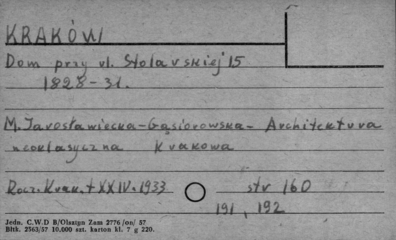 KRAKÓW
Dom przy ul. Stolarskiej 15
1828-31.
M. Jarosławiecka-Gąsiorowska - Architektura
neoklasyczna Krakowa
Rocz. Krak. t XXIV. 1933 str 160
191, 192
Jedn. C.W.D B/Olsztyn Zam 2776/on/ 57
Bltk. 2563/57 10.000 szt. karton kl. 7 g 220.